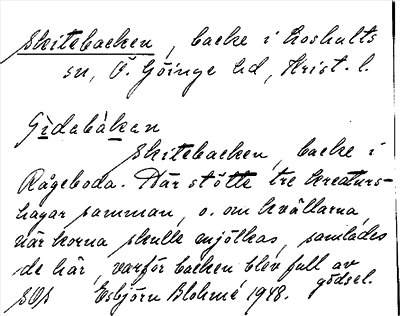 Skitebacken, backe i Loshults
sn, Ö. Göinge hd, Krist. l.
Gidabákan
Skitebacken, backe i
Rågeboda. Där stötte tre kreaturs-
hagar samman, o. om kvällarna,
när korna skulle mjölkas, samlades
de här, varför backen blev full av
gödsel.
Esbjörn Blohmé 1948.